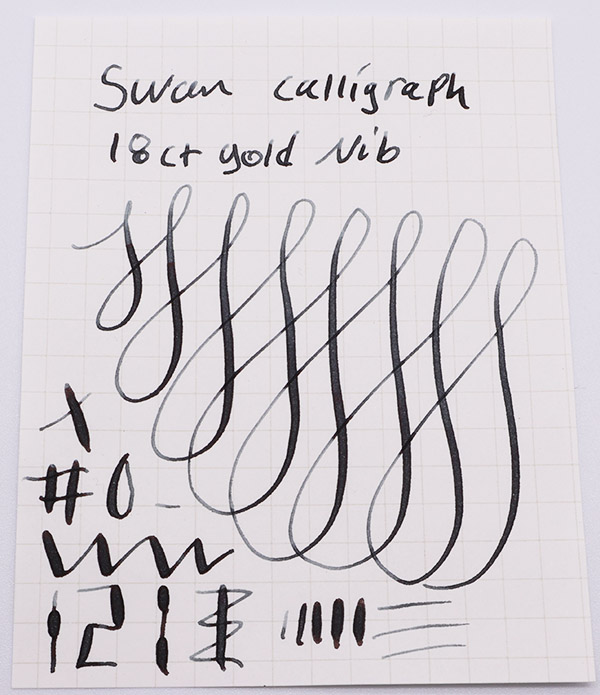 Swan calligraph
18ct gold Nib
x
#0-